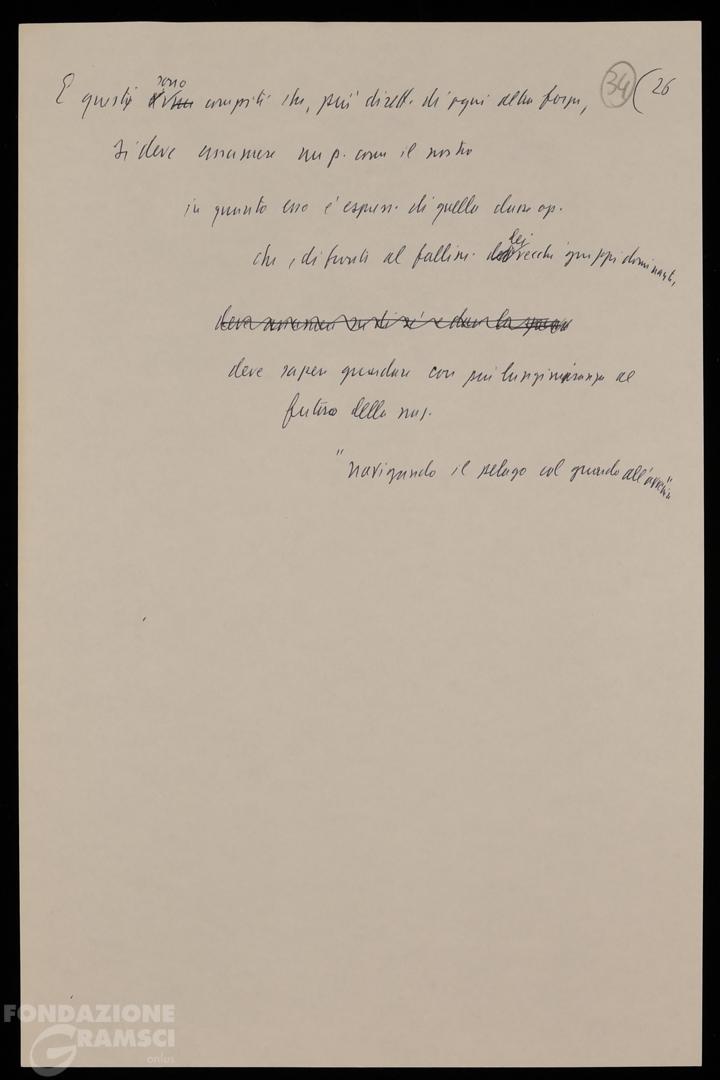 E questi sono compiti che, più di ogni altra forza,
si deve assumere un p. come il nostro
in quanto esso è espress. di quella classe op.
che, di fronte al fallim. dei vecchi gruppi dominanti,
deve saper guardare con più lungimiranza al
futuro della naz.
"navigando il pelago col guardo all'
34
26
FONDAZIONE
GRAMSCI
onlus